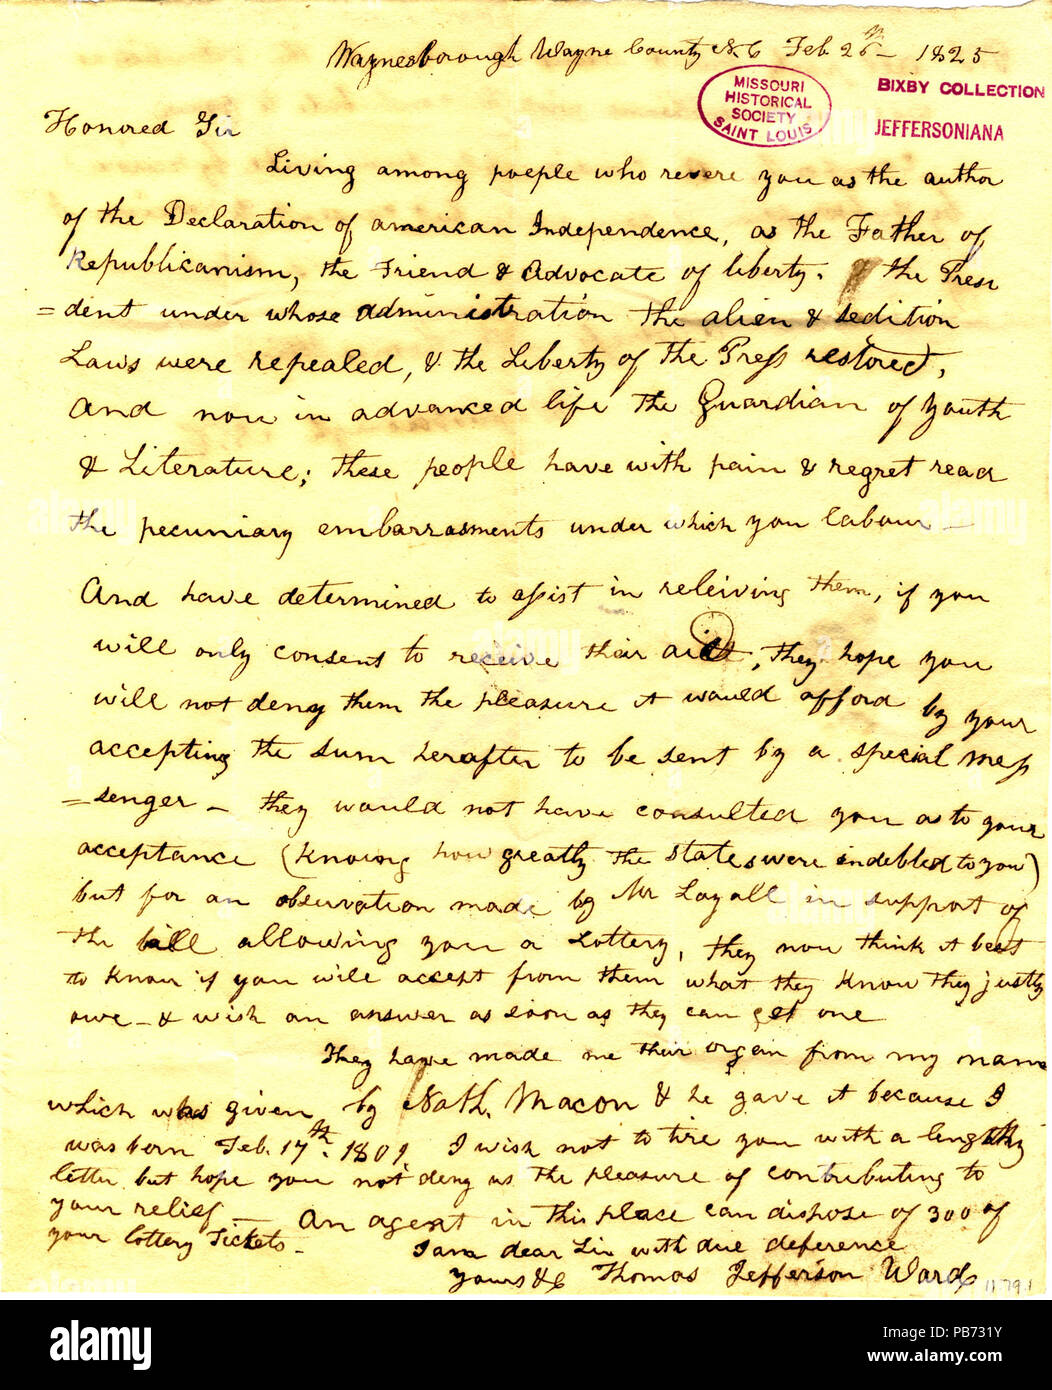 Waynesborough Wayne County N C Feb. 26th 1825
MISSOURI
HISTORICAL
SOCIETY
SAINT LOUIS
BIXBY COLLECTION
JEFFERSONIANA
Honored Sir
Living among poeple who revere you as the author
of the Declaration of american Independence, as the Father of
Republicanism, the Friend & Advocate of liberty. & the Presi
=dent under whose administration the alien & sedition
Laws were repealed, & the Liberty of the Press restored,
And now in advanced life the Guardian of Youth
& Literature; these people have with pain & regret read
the pecuniary embarrasments under which you labour —
And have determined to assist in releiving them, if you
will only consent to receive their aid, they hope you
will not deny them the pleasure it would afford by your
accepting the sum herafter to be sent by a special mes
=senger — they would not have consulted you as to your
acceptance (knowing how greatly the states were indebled to you)
but for an observation made by Mr Loyall in support of
the bill allowing you a Lottery, they now think it best
to know if you will accept from them what they know they justly
owe — & wish an answer as soon as they can get one
They have made me their organ from my name
which was given by Nath. Macon & he gave it because I
was born Feb. 17th. 1801 I wish not to tire you with a lengthy
letter but hope you not deny us the pleasure of contributing to
your relief — An agent in this place can dispose of 300 of
your lottery Tickets —
I am dear Sir with due deference
Yours &C Thomas Jefferson Ward
11.79.1
alamy
Image ID: PB731Y
www.alamy.com